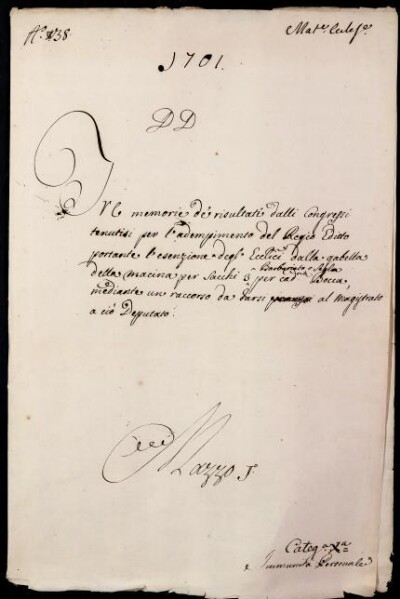 Mat.e Eccles.e
1701.
DD
memorie de' risultati dalli Congressi
tenutisi per l'adempimento del Regio Editto
portante l'esenzione degl' Eccl.ci dalla gabella
Barbariato e Segla
della macina per sacchi 3 per cad.na Bocca,
mediante un raccorso da darsi al Magistrato
a ciò Deputato.
Mazzo J.
Categ.a X.a
Immunità Personale